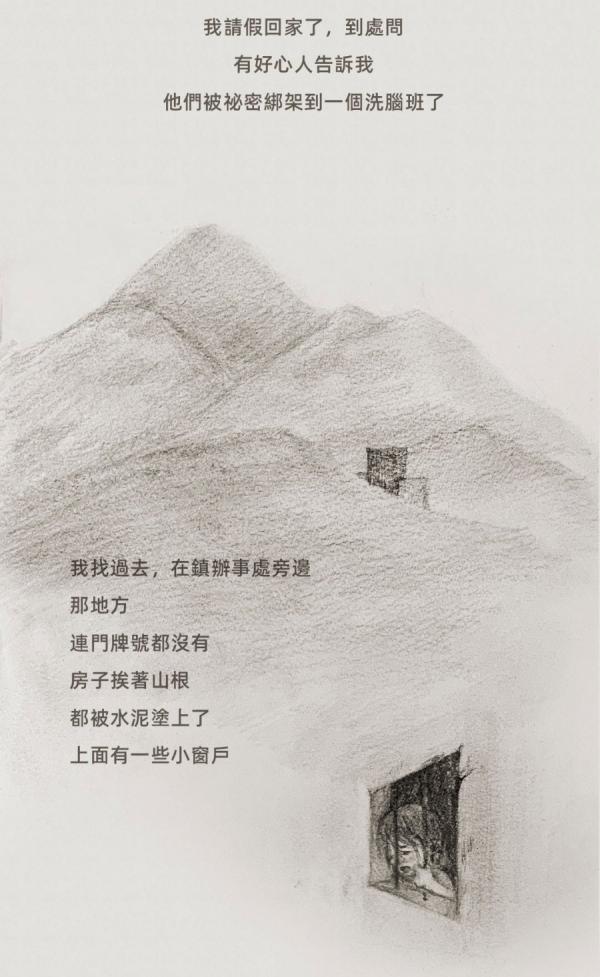 我請假回家了，到處問
有好心人告訴我
他們被祕密綁架到一個洗腦班了
我找過去，在鎮辦事處旁邊
那地方
連門牌號都沒有
房子挨著山根
都被水泥塗上了
上面有一些小窗戶